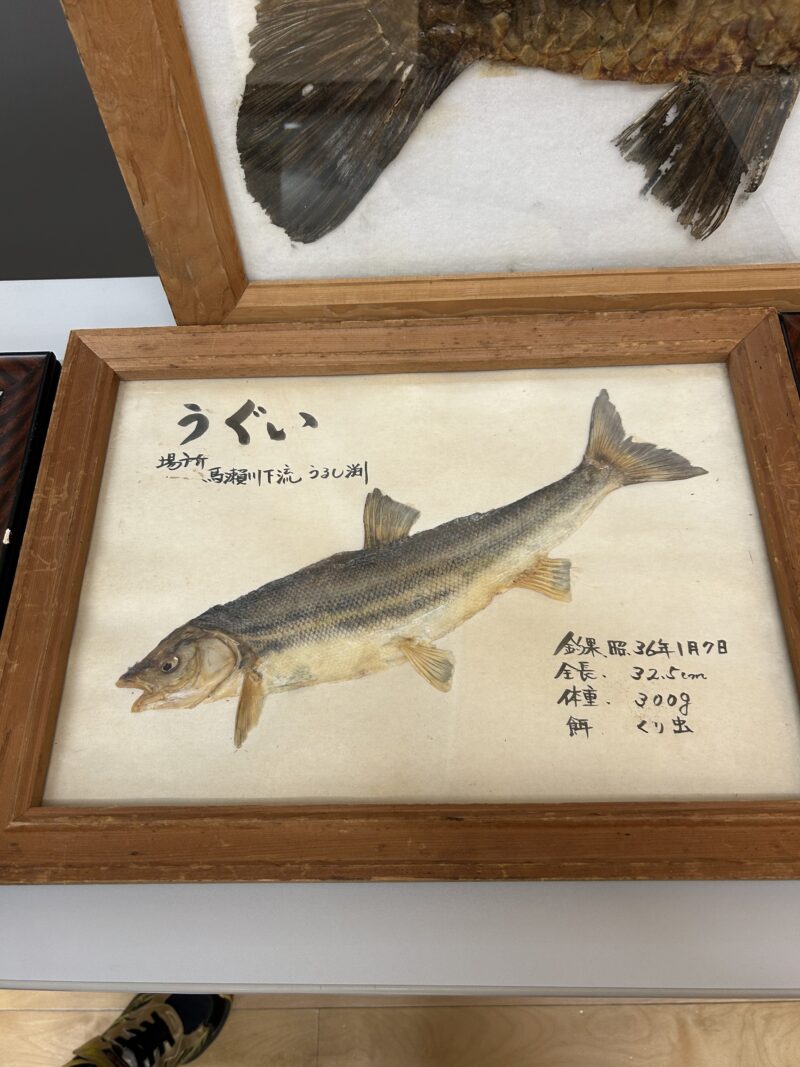 うぐい
場所
馬瀬川下流 うるし渕
釣果. 昭. 36年1月7日
全長. 32.5cm
体重. 300g
餌 くり虫